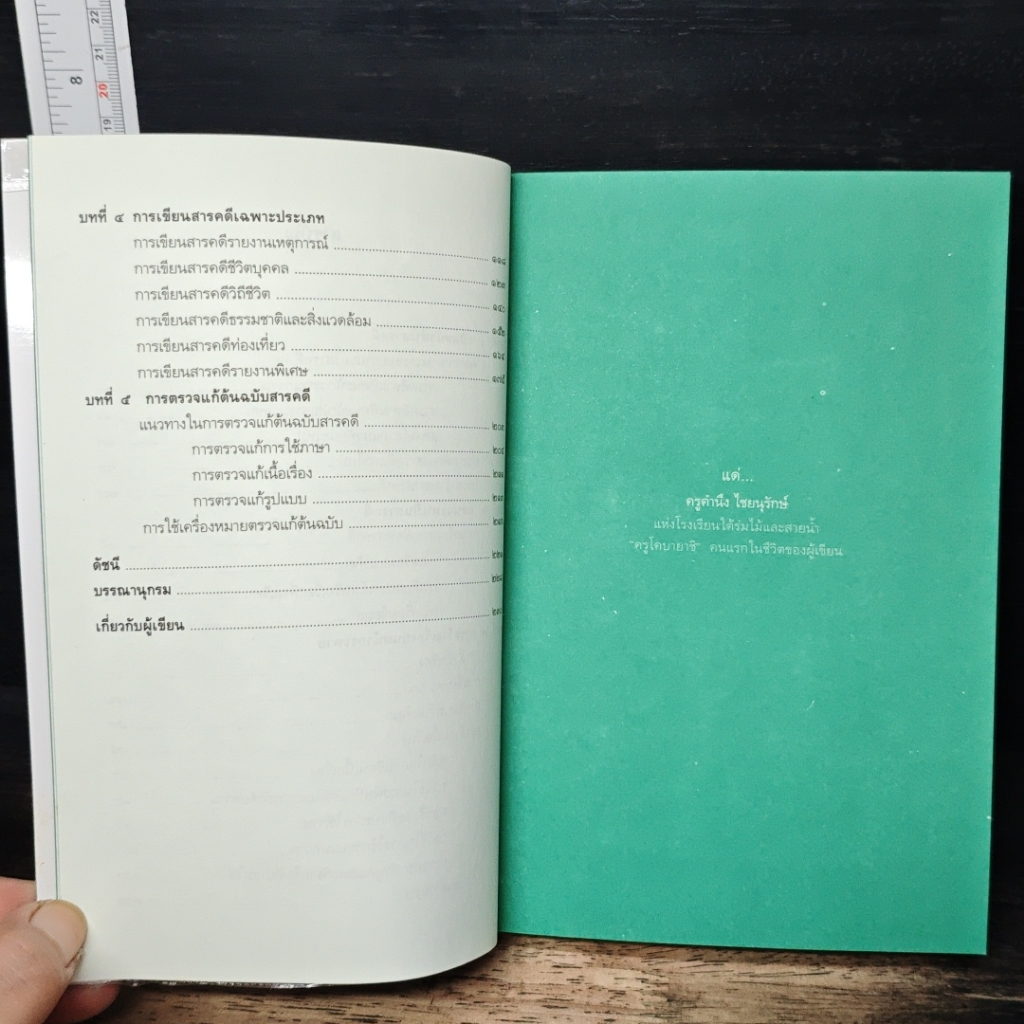 บทที่ ๔ การเขียนสารคดีเฉพาะประเภท
การเขียนสารคดีรายงานเหตุการณ์ ๑๑๘
การเขียนสารคดีชีวิตบุคคล ๑๒๓
การเขียนสารคดีวิถีชีวิต ๑๔๖
การเขียนสารคดีธรรมชาติและสิ่งแวดล้อม ๑๕๒
การเขียนสารคดีท่องเที่ยว ๑๖๔
การเขียนสารคดีรายงานพิเศษ ๑๗๕
บทที่ ๕ การตรวจแก้ต้นฉบับสารคดี
แนวทางในการตรวจแก้ต้นฉบับสารคดี
การตรวจแก้การใช้ภาษา
การตรวจแก้เนื้อเรื่อง
การตรวจแก้รูปแบบ
การใช้เครื่องหมายตรวจแก้ต้นฉบับ
ดัชนี
บรรณานุกรม
เกี่ยวกับผู้เขียน
แด่...
ครูคำนึง ไชยนุรักษ์
แห่งโรงเรียนใต้ร่มไม้และสายน้ำ
"ครูโคบายาชิ" คนแรกในชีวิตของผู้เขียน
22
21
8
20
19